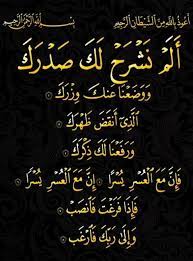 أعوذ بالله من الشيطان الرجيم
بسم الله الرحمن الرحيم
أَلَمْ نَشْرَحْ لَكَ صَدْرَكَ
وَوَضَعْنَا عَنكَ وِزْرَكَ
الَّذِي أَنقَضَ ظَهْرَكَ
وَرَفَعْنَا لَكَ ذِكْرَكَ
فَإِنَّ مَعَ الْعُسْرِ يُسْرًا إِنَّ مَعَ الْعُسْرِ يُسْرًا
فَإِذَا فَرَغْتَ فَانصَبْ
وَإِلَىٰ رَبِّكَ فَارْغَب